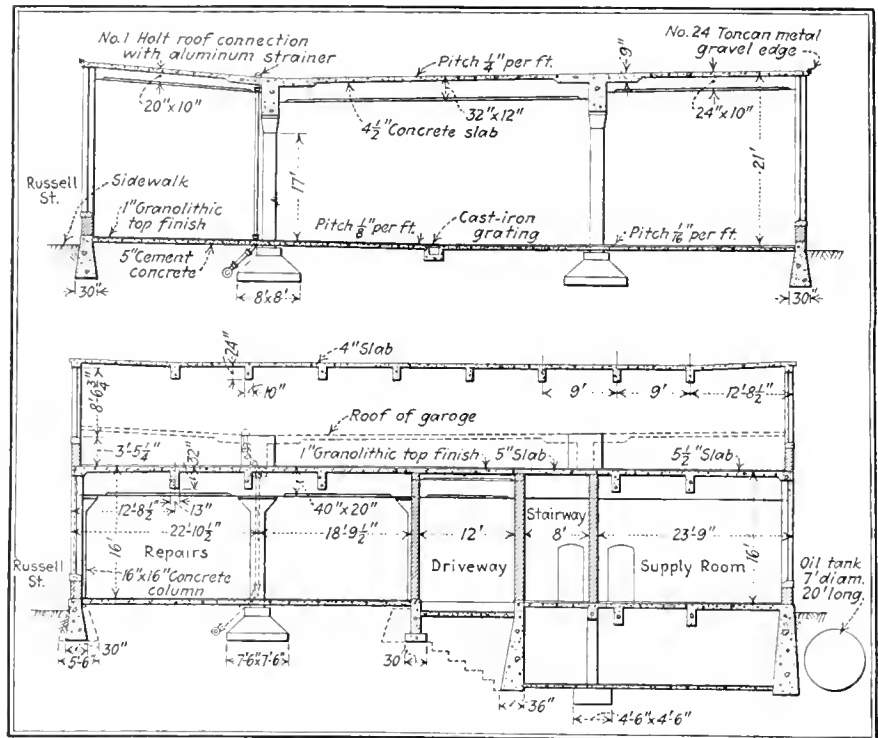 No.1 Holt roof connection
with aluminum strainer
No. 24 Toncan metal
gravel edge
Pitch 1/4" per ft.
9"
20"x10"
32"x12"
4 1/2" Concrete slab
24"x10"
17'
21'
Russell
St.
Sidewalk
1" Granolithic
top finish
Pitch 1/8" per ft.
Cast-iron
grating
Pitch 1/16" per ft.
5" Cement
concrete
30"
8'x8'
30"
24"
4" Slab
8'-6 3/4"
10"
9'
9'
12'-8 1/2"
Roof of garoge
3'-5 1/4"
32"
1" Granolithic top finish
5" Slab
5 1/2" Slab
12'-8 1/2"
13"
40"x20"
22'-10 1/2"
18'-9 1/2"
12'
Stairway
8'
23'-9"
16'
Repairs
Driveway
Supply Room
16'
Russell
St.
16"x16" Concrete
column
Oil tank
7' diam.
20' long.
5'-6"
30"
7'-6"x7'-6"
30"
36"
4'-6"x4'-6"